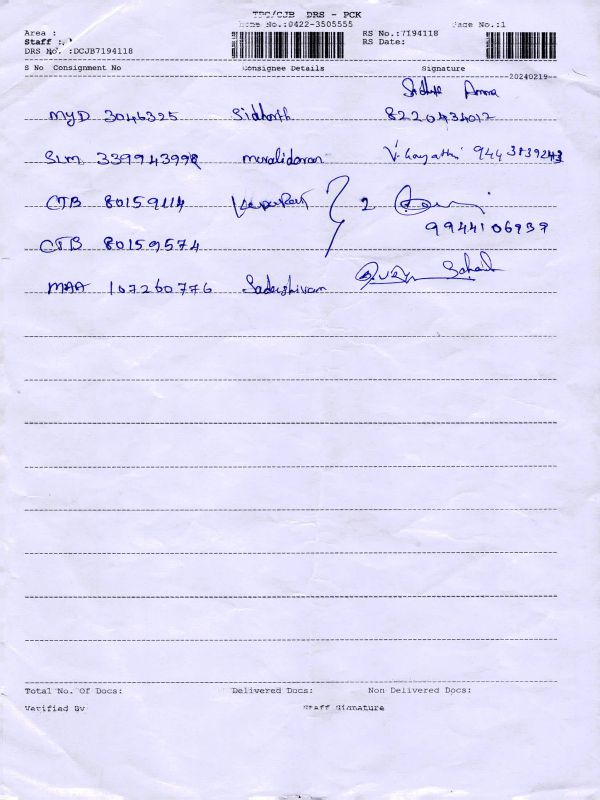 TPC/CJB DRS - PCK
Home No.:0422-3505555 Page No.:1
Area :
Staff : RS No.:7194118
DRS No. :DCJB7194118 RS Date:
S No Consignment No Consignee Details Signature
20240219
Amma
MYD 3046325 Sidharth 8220434012
SLM 339943992 muralidaran 9443839243
CTB 80159114 2
9944106937
CTB 80159574
MAA 107260776 Sadashivam
Total No. Of Docs: Delivered Docs: Non Delivered Docs:
Verified By Staff Signature